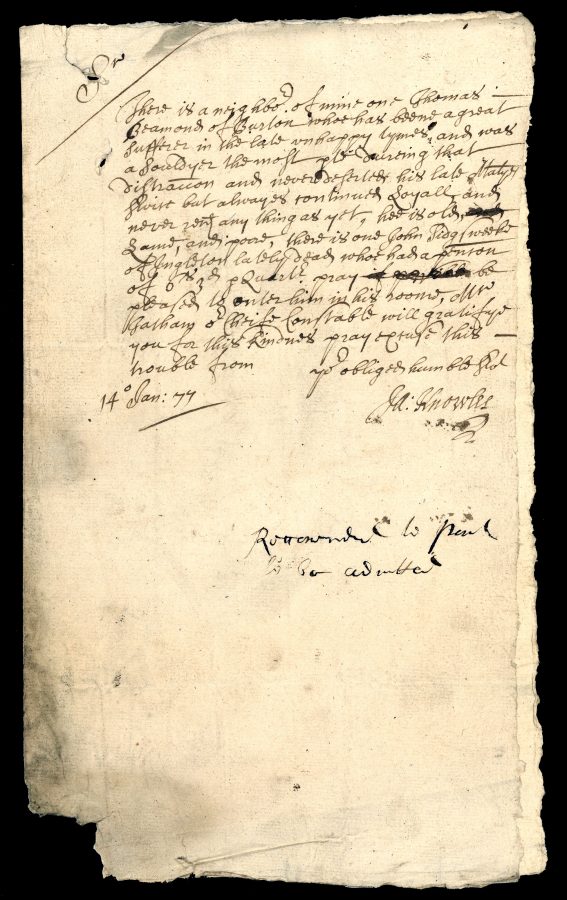 Sr
There is a neighbor. of mine one Thomas
Beamond of Burton whoe has beene a great
sufferer in the late unhappy tymes, and was
a Souldyer the most pte dureing that
distraccon and never deserted his late Matyes
service but alwayes continued Loyall, and
never recd any thing as yet, hee is old,
Lame, and poore, there is one John Sidgsweeke
of Ingleton lately dead, whoe had a pencon
of p Quartr pray be
pleased to enter him in his roome, Mr
Latham or Cheife Constable will gratifye
you for this kindnes pray excuse this
trouble from yor obliged humble
14o Jan: 77
Ja: Knowles
to
to be admitted